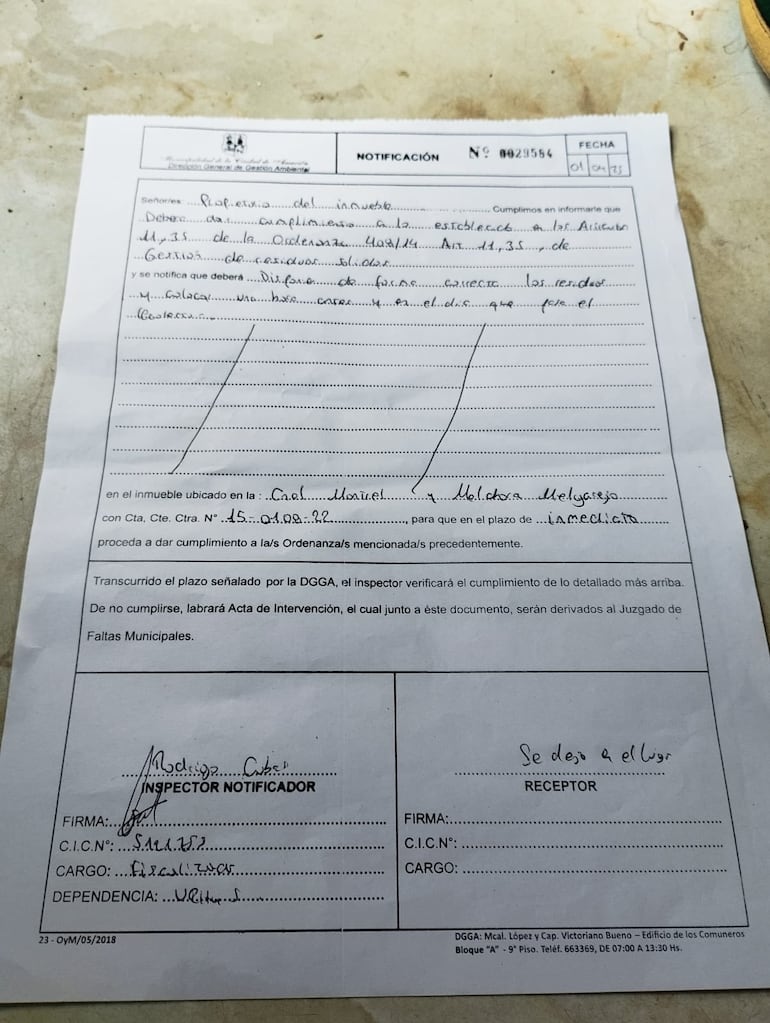 Municipalidad de la Ciudad de Asunción
Dirección General de Gestión Ambiental
NOTIFICACIÓN
Nº 0029584
FECHA
01 04 25
Señor/es Propietario del inmueble Cumplimos en informarle que
Debera dar cumplimiento a lo establecido en los Articulos
11, 35 de la Ordenanza 408/14 Art 11, 35, de
Gestion de residuos solidos
y se notifica que deberá Disponer de forma correcta los residuos
y colocar una hora antes y en el dia que pasa el
en el inmueble ubicado en la : Cnel y Melchora Melgarejo
con Cta, Cte. Ctra. N° 15-0109-22, para que en el plazo de inmediato
proceda a dar cumplimiento a la/s Ordenanza/s mencionada/s precedentemente.
Transcurrido el plazo señalado por la DGGA, el inspector verificará el cumplimiento de lo detallado más arriba.
De no cumplirse, labrará Acta de Intervención, el cual junto a éste documento, serán derivados al Juzgado de
Faltas Municipales.
Rodrigo
INSPECTOR NOTIFICADOR
FIRMA:
C.I.C.N°:
CARGO: Fiscalizador
DEPENDENCIA:
Se dejo en el lugar
RECEPTOR
FIRMA:
C.I.C.N°:
CARGO:
23 - OyM/05/2018
DGGA: Mcal. López y Cap. Victoriano Bueno – Edificio de los Comuneros
Bloque "A" - 9° Piso. Teléf. 663369, DE 07:00 A 13:30 Hs.